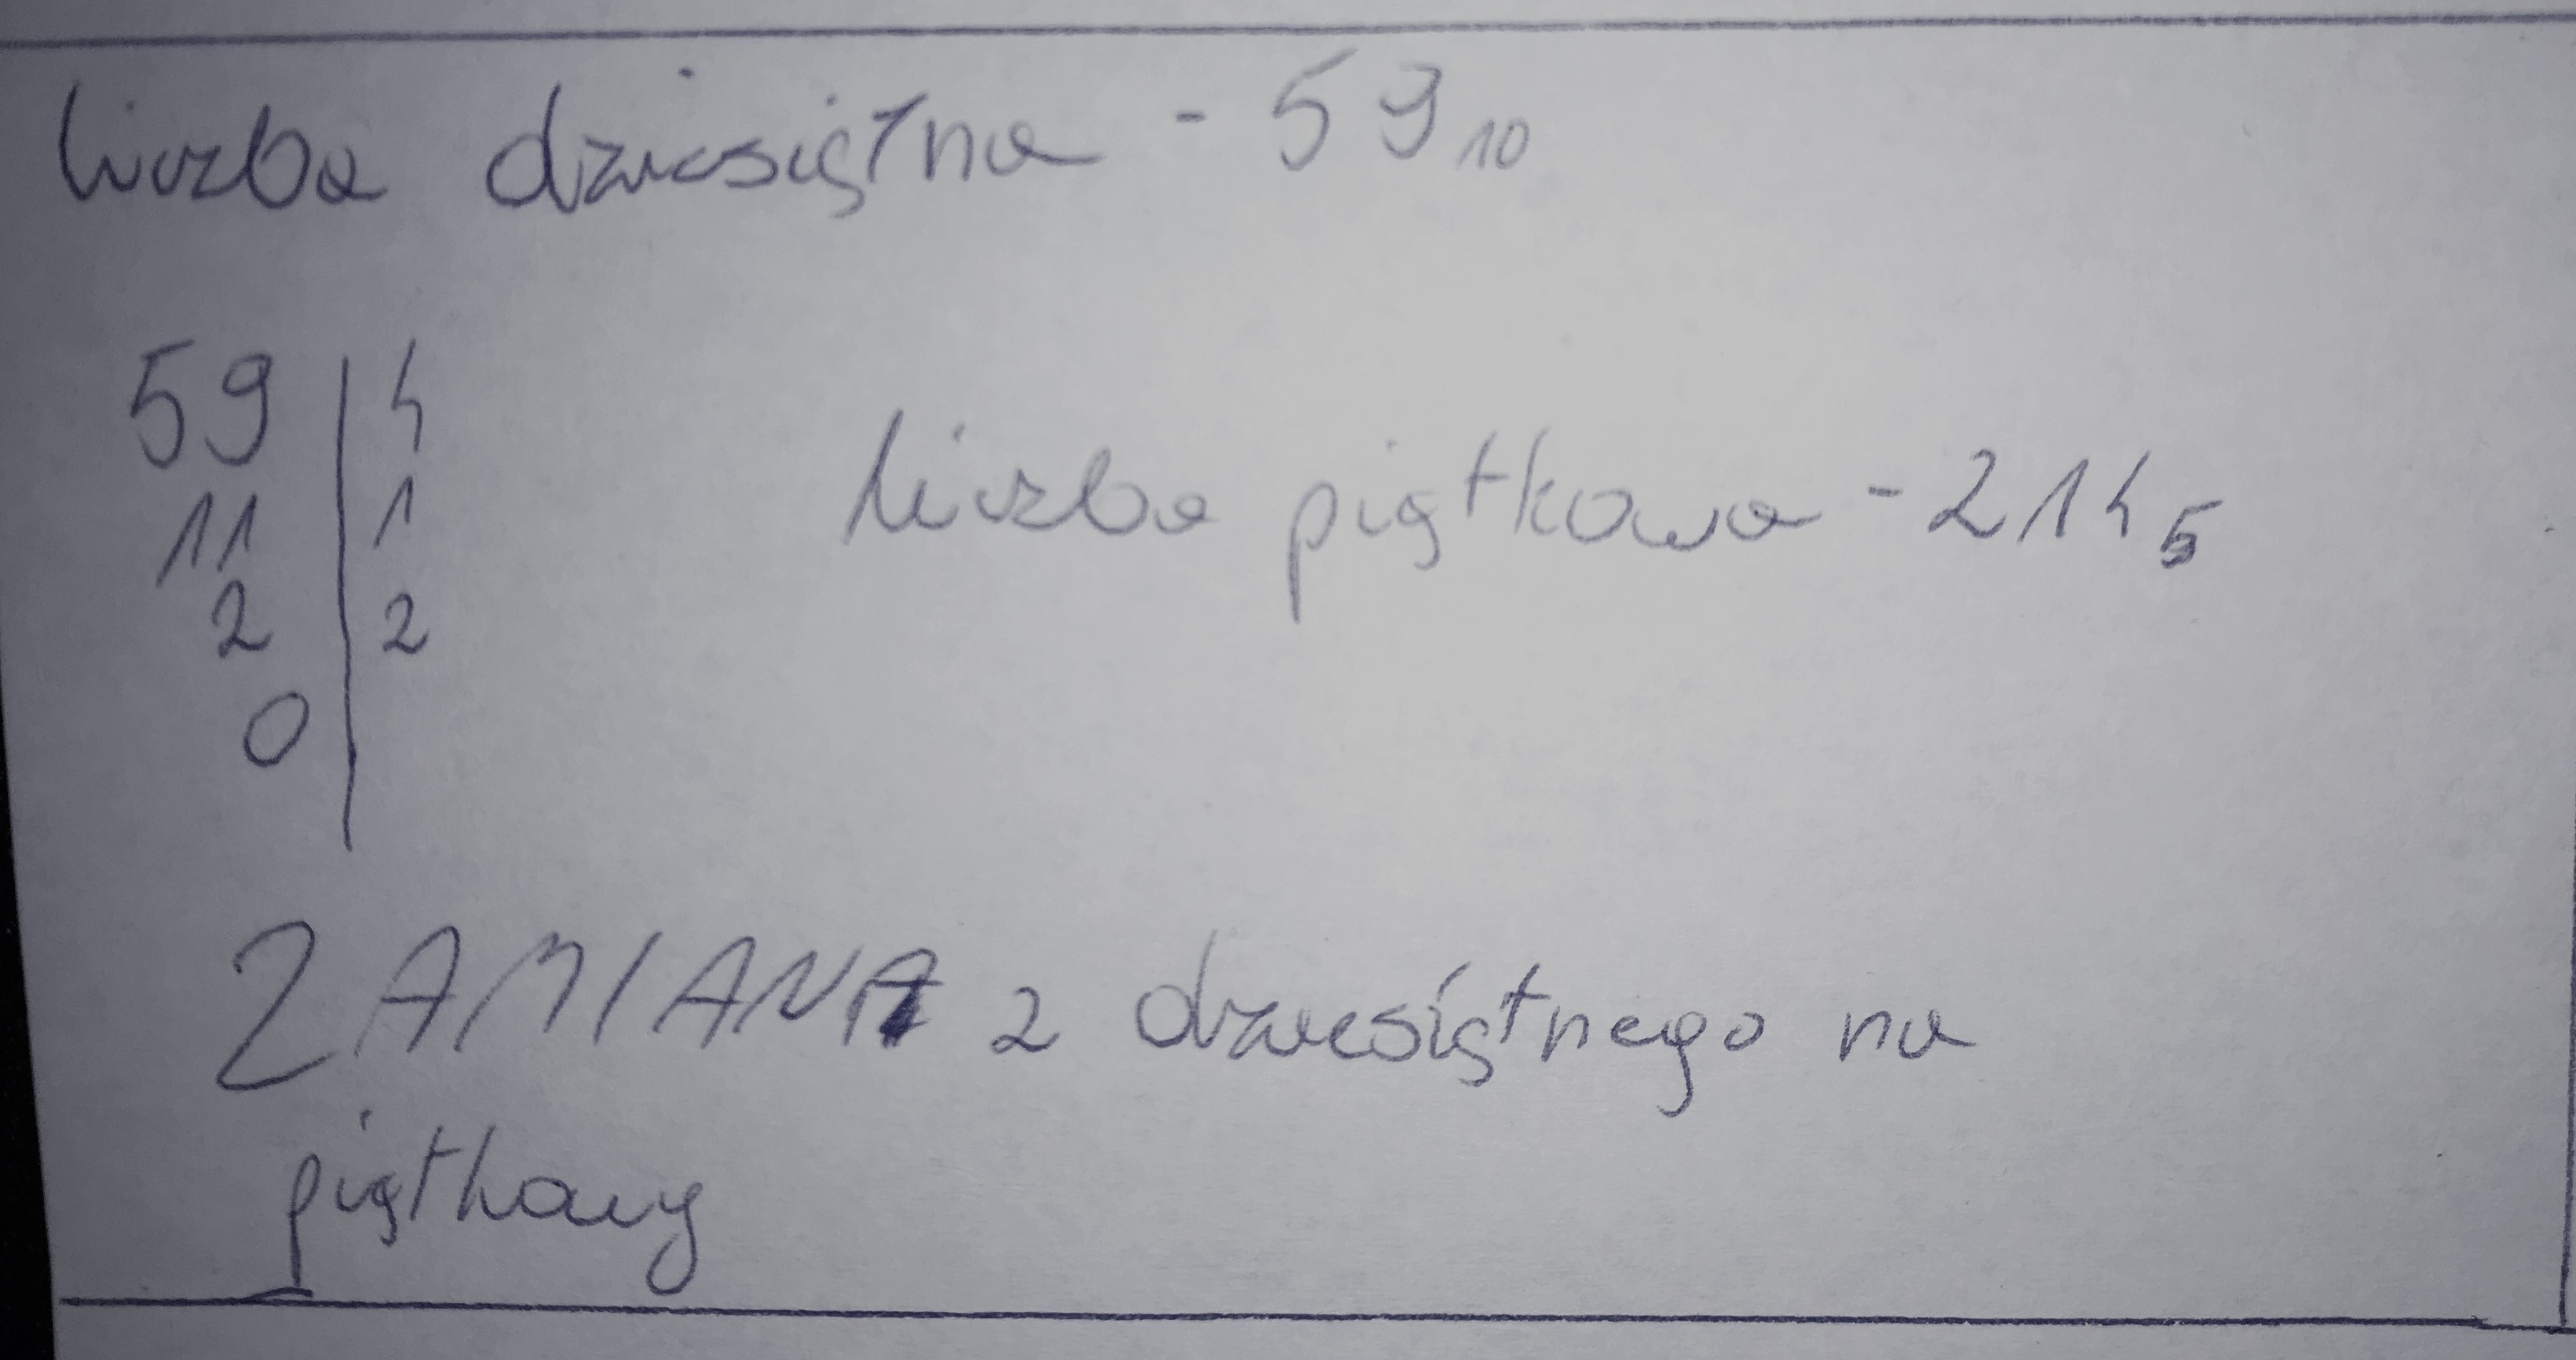 liczba dziesiętna - 59₁₀
59 | 4
11 | 1
2 | 2
0 |
liczba piątkowa - 214₅
ZAMIANA z dziesiętnego na
piątkowy